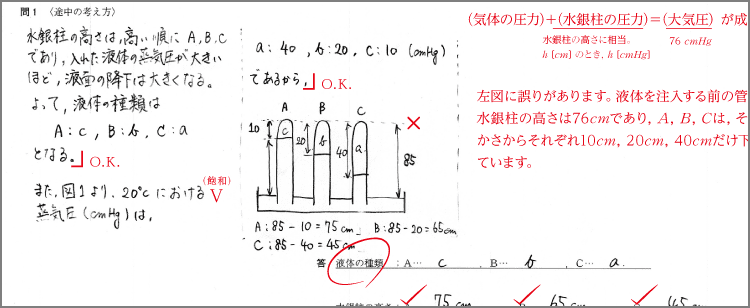 問1 〈途中の考え方〉
水銀柱の高さは,高い順に A,B,C
であり,入れた液体の蒸気圧が大きい
ほど,液面の降下は大きくなる。
よって,液体の種類は
A:c, B:b, C:a
となる。 O.K.
また,図1より,20℃における
(飽和)
蒸気圧(cmHg)は,
a:40, b:20, c:10 (cmHg)
であるから, O.K.
A B C
10 20 40 85
c b a
A:85-10=75cm B:85-20=65cm
C:85-40=45cm
答 液体の種類 : A… c . B… b . C… a .
75cm 65cm 45cm
(気体の圧力)+(水銀柱の圧力)=(大気圧) が成
水銀柱の高さに相当。 76 cmHg
h [cm] のとき, h [cmHg]
左図に誤りがあります。液体を注入する前の管
水銀柱の高さは76cmであり, A, B, Cは, そ
かさからそれぞれ10cm, 20cm, 40cmだけ下
ています。